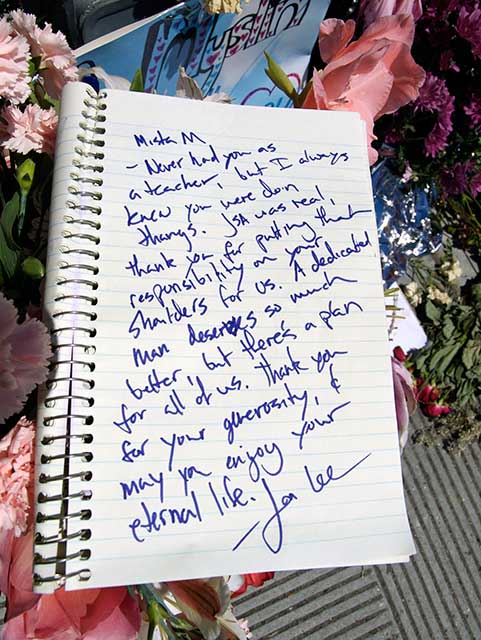 Mista M
- Never had you as
a teacher, but I always
knew you were doin
thangs. JSA was real,
thank you for putting that
responsibility on your
shoulders for us. A dedicated
man deserves so much
better, but there's a plan
for all of us. Thank you
for your generosity, &
may you enjoy your
eternal life.
- Jon Lee